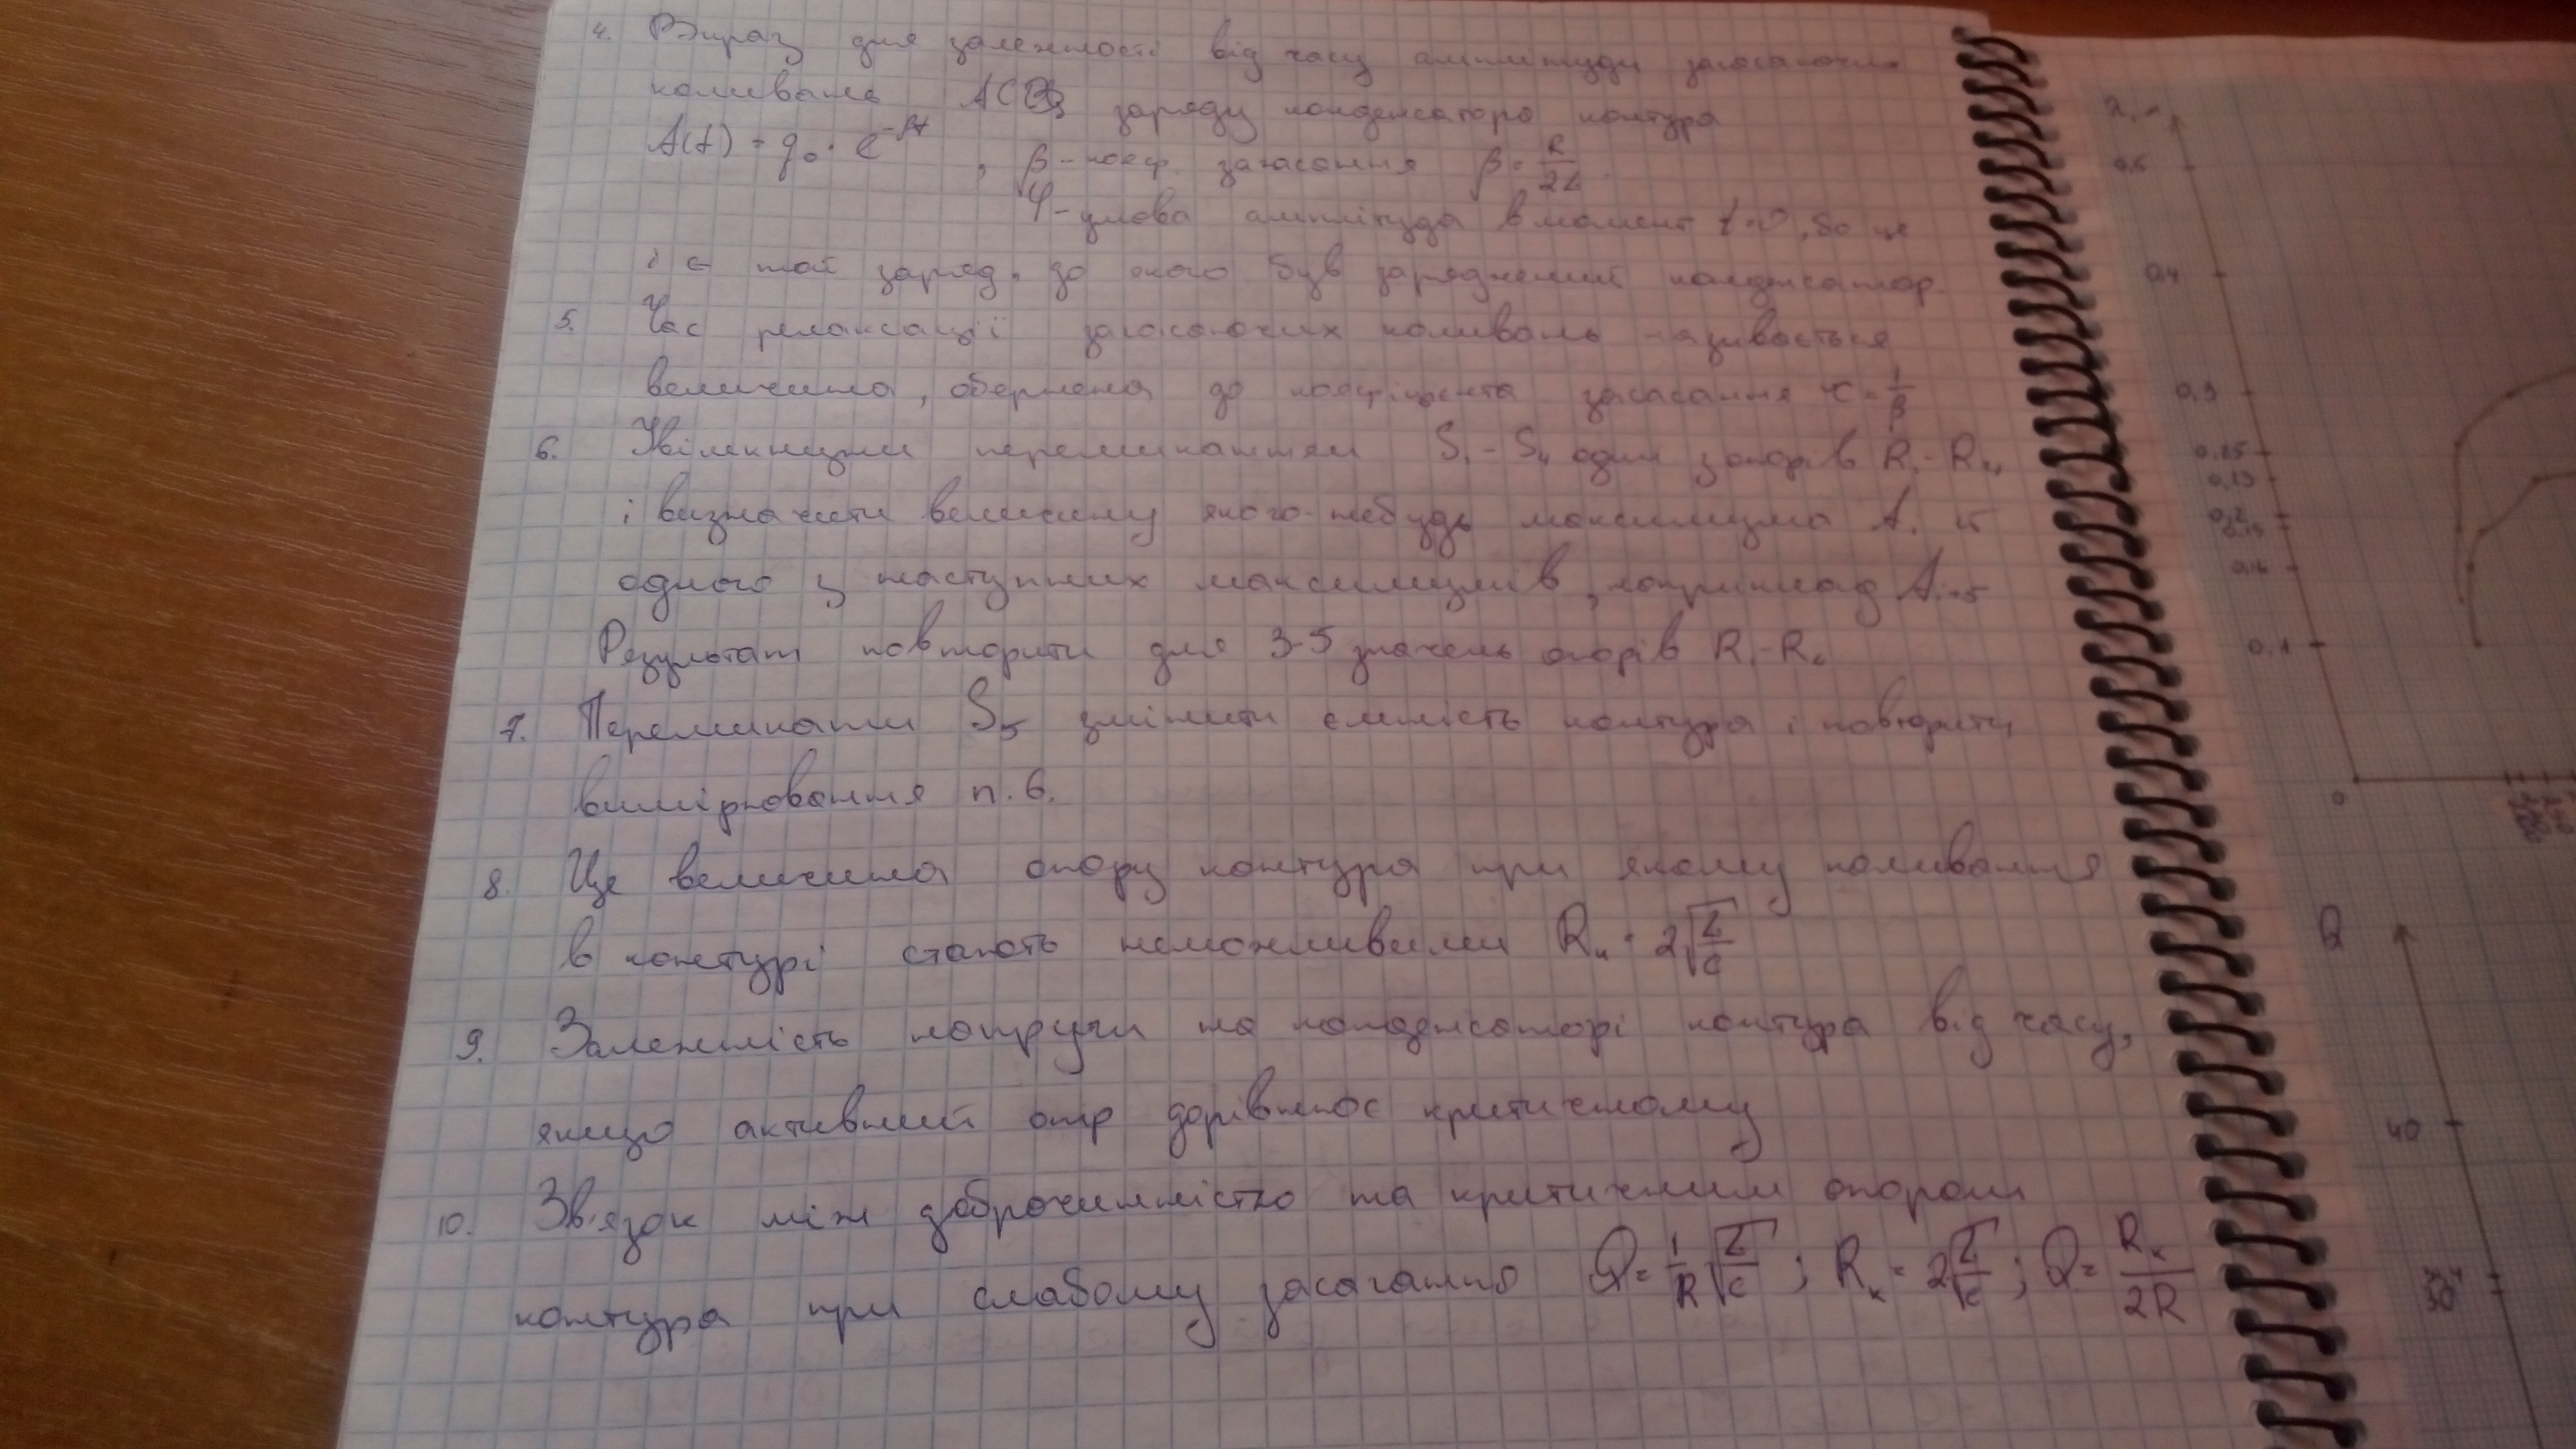 4. Вираз для залежності від часу амплітуди загасаючих
коливань заряду конденсатора контура
A(t) = q₀ · e^(-βt) , β - коеф. загасання β = R/2L
φ - умова амплітуда в момент t=0, бо це
і є той заряд, до якого був заряджений конденсатор.
5. Час релаксації загасаючих коливань називається
величина, обернена до коефіцієнта загасання τ = 1/β
6. Увімкнути перемикачем S₁ - S₄ один з опорів R₁ - R₄,
і визначити величину якого-небудь максимума Aᵢ і
одного з наступних максимумів, наприклад Aᵢ₊₅
Результат повторити для 3-5 значень опорів
7. Перемикати S₅ змінити ємність контура і повторити
вимірювання п. 6.
8. Це величина опору контура при якому коливання
в контурі стають неможливими Rк = 2√(L/C)
9. Залежність напруги на конденсаторі контура від часу,
якщо активний опір дорівнює критичному
10. Зв'язок між доброчинністю та критичним опором
контура при слабому засаганню Q = 1/R √(L/C) ; Rк = 2√(L/C) ; Q = Rк/2R
0,4
0,3
0,25
0,2
0,16
0,1
0
Q
40
30